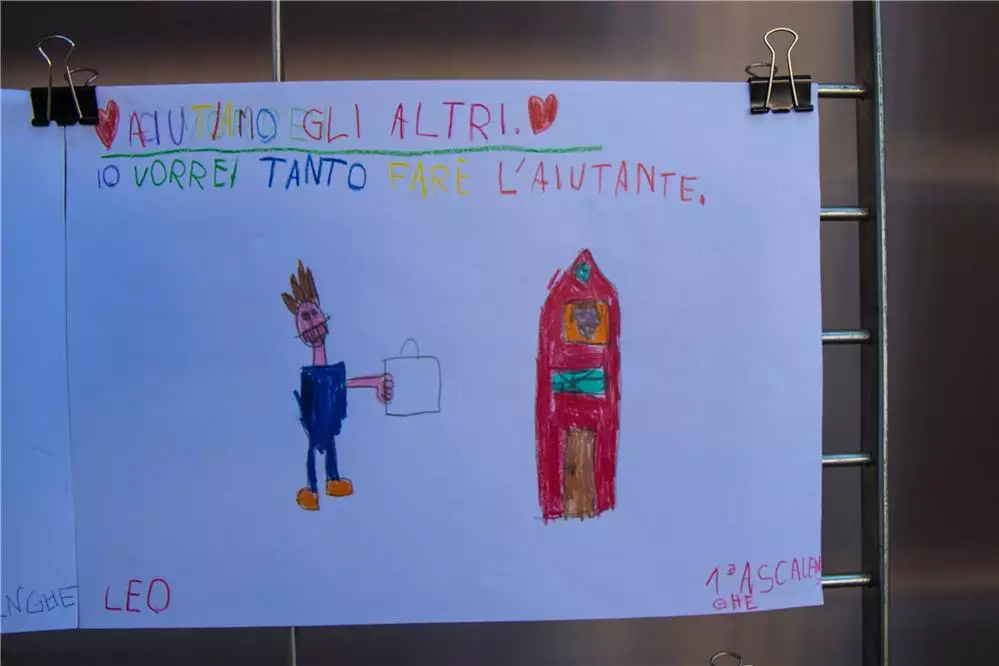 AIUTIAMO GLI ALTRI.
IO VORREI TANTO FARE L'AIUTANTE.
NGHE
LEO
1ª A SCALEN
GHE